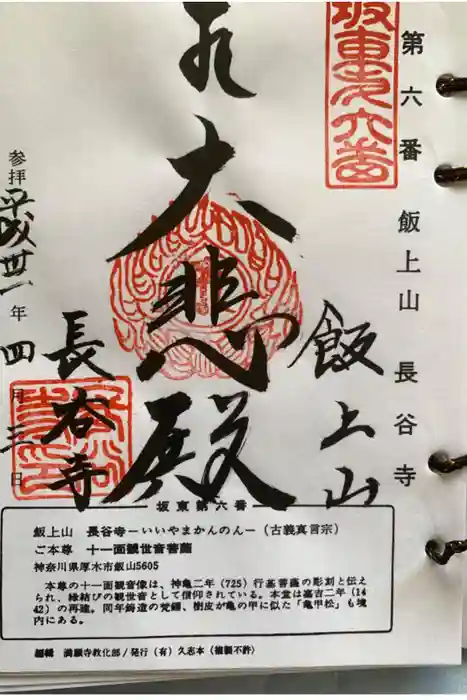 第六番　飯上山　長谷寺
坂東第六番
飯上山
大悲殿
長谷寺
参拝 平成卅一年四月三日
坂東第六番
飯上山　長谷寺ーいいやまかんのんー（古義真言宗）
ご本尊　十一面観世音菩薩
神奈川県厚木市飯山5605
本尊の十一面観音像は、神亀二年（725）行基菩薩の彫刻と伝え
られ、縁結びの観世音として信仰されている。本堂は嘉吉二年（14
42）の再建。同年鋳造の梵鐘、樹皮が亀の甲に似た「亀甲松」も境
内にある。
編輯　満願寺教化部／発行（有）久志本（複製不許）